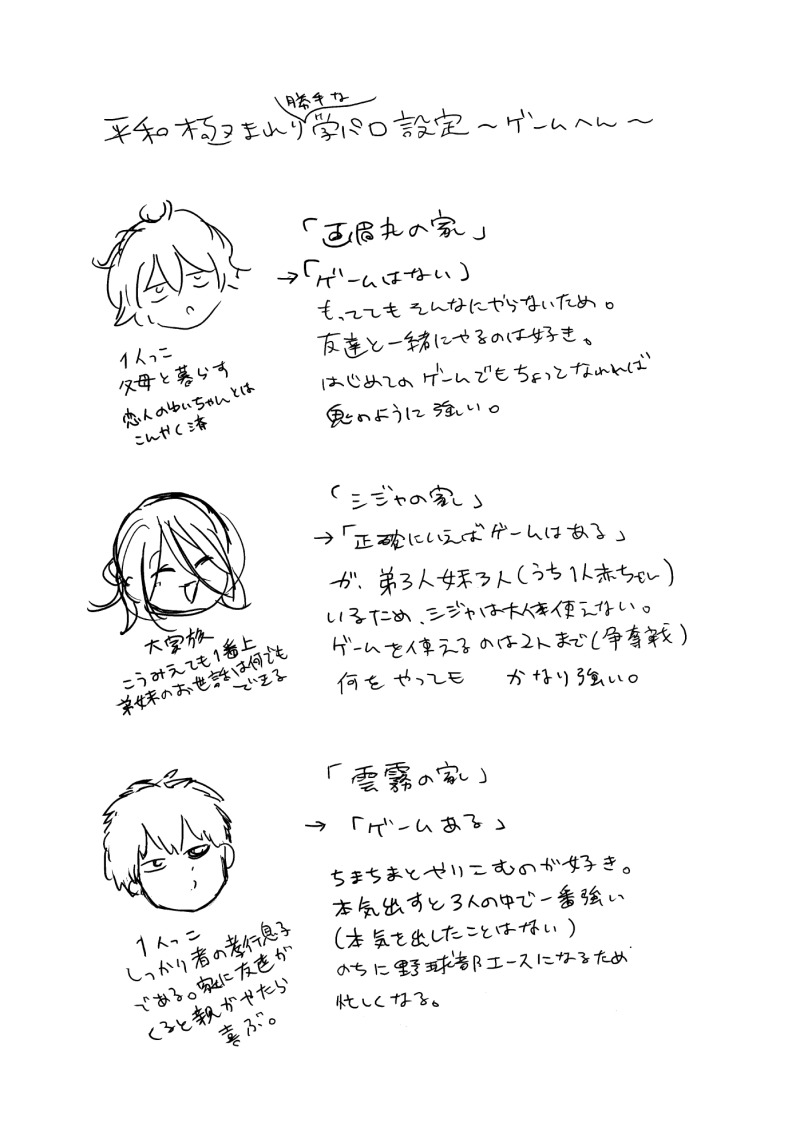 平和極まれり勝手な学パロ設定～ゲームへん～
「画眉丸の家」
→「ゲームはない」
もっててもそんなにやらないため。
友達と一緒にやるのは好き。
はじめてのゲームでもちょっとなれれば
鬼のように強い。
1人っこ
父母と暮らす
恋人のゆいちゃんとは
こんやく済
「シジャの家」
→「正確にいえばゲームはある」
が、弟3人妹3人(うち1人赤ちゃん)
いるため、シジャは大体使えない。
ゲームを使えるのは2人まで(争奪戦)
何をやっても かなり強い。
大家族
こうみえても1番上
弟妹のお世話は何でも
できる
「雲霧の家」
→「ゲームある」
ちまちまとやりこむのが好き。
本気出すと3人の中で一番強い
(本気を出したことはない)
のちに野球部エースになるため
忙しくなる。
1人っこ
しっかり者の孝行息子
である。家に友達が
くると親がやたら
喜ぶ。